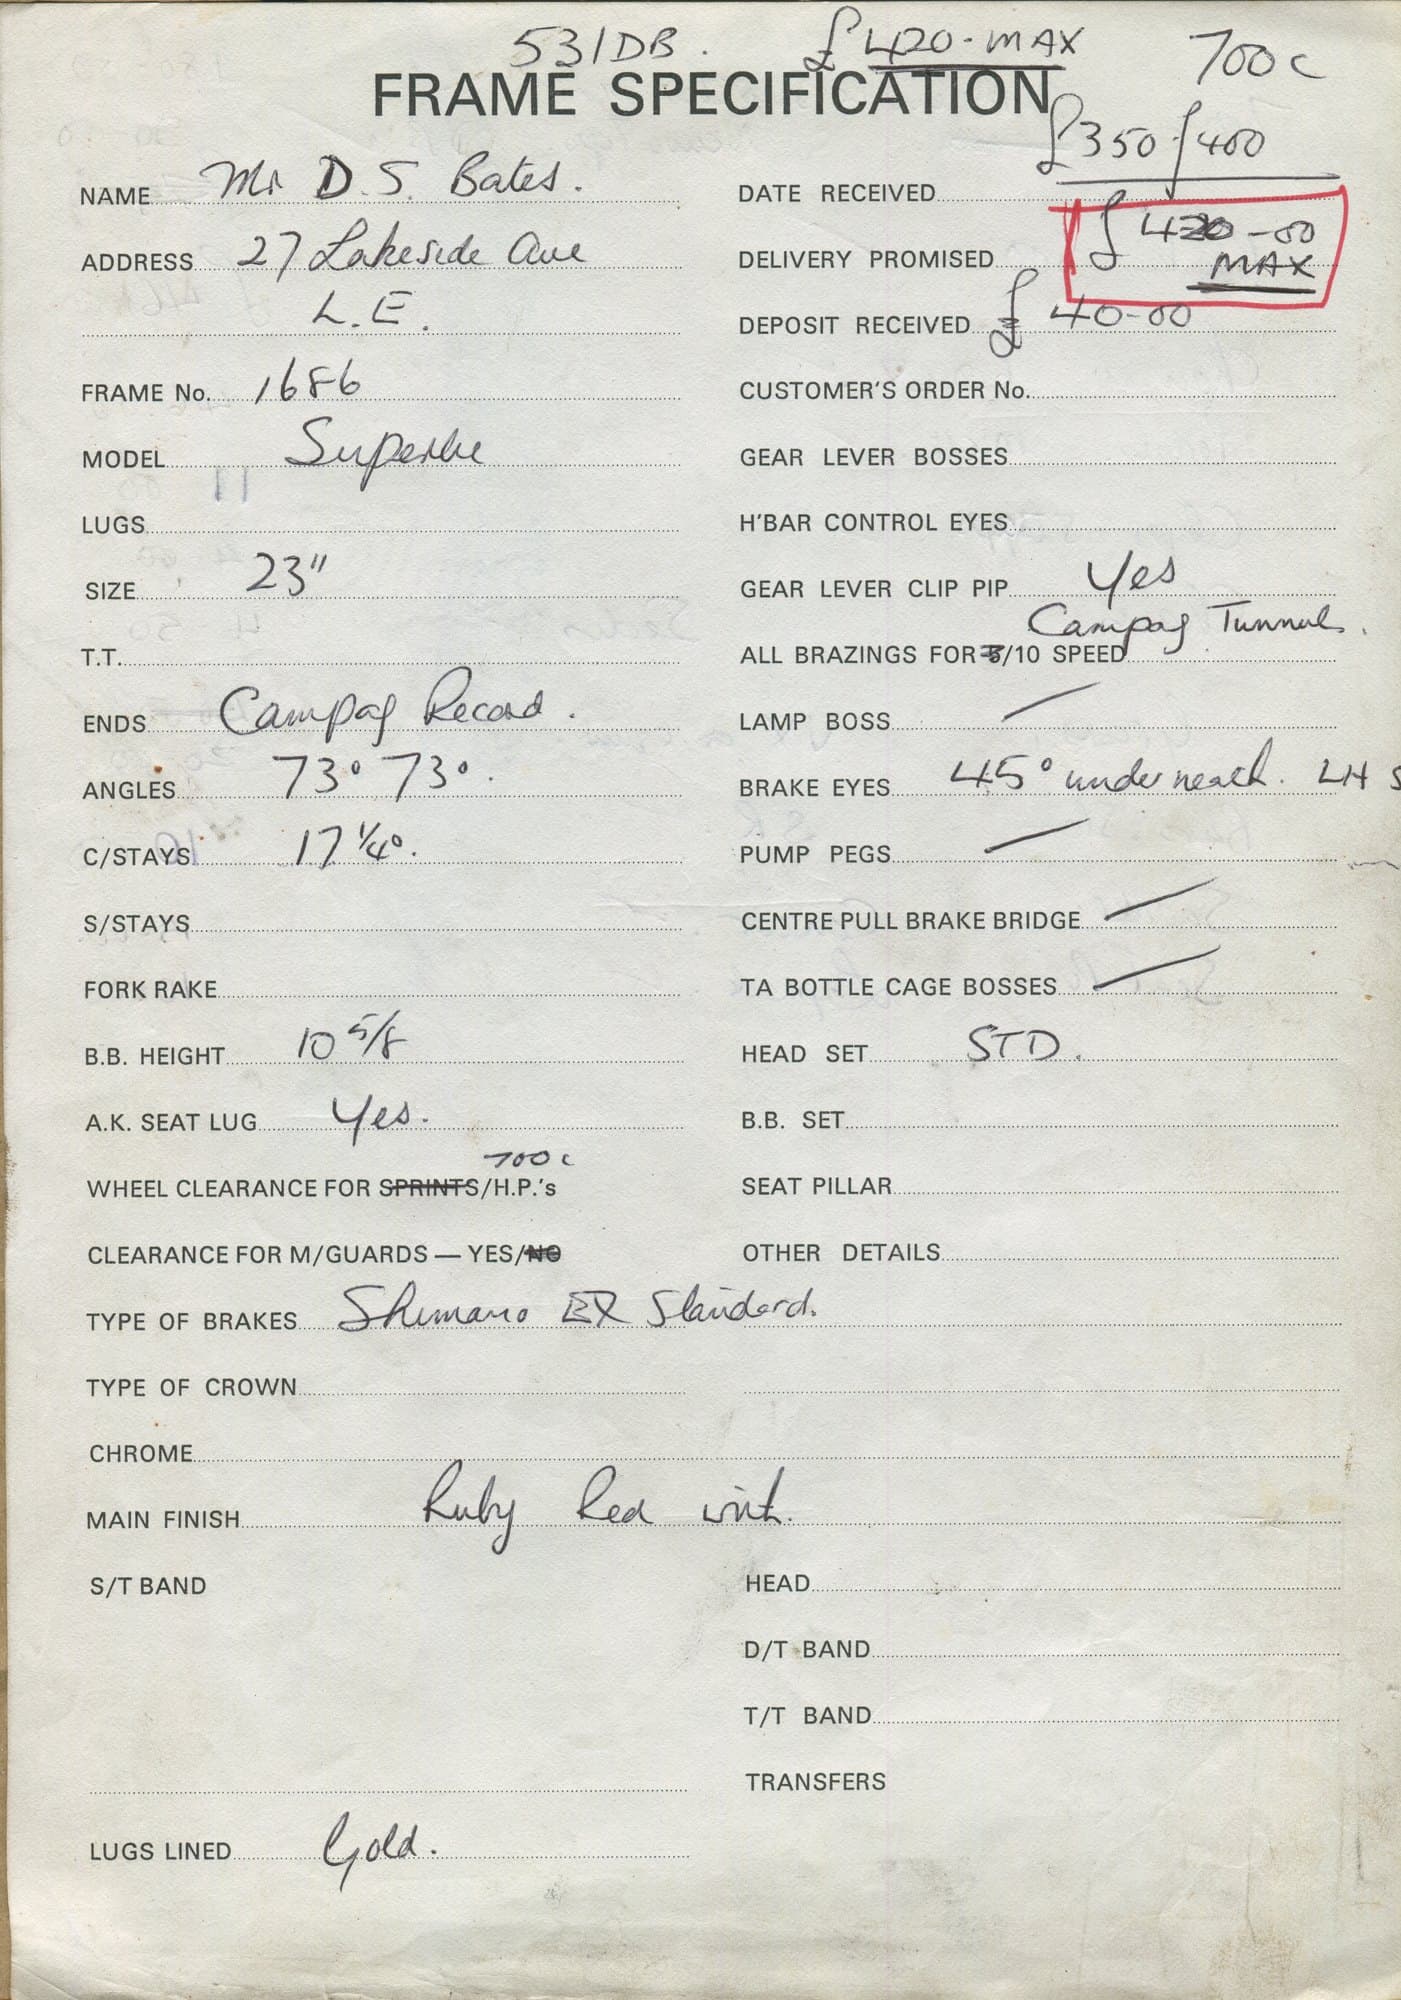 531DB. £420-MAX 700c
FRAME SPECIFICATION
£350-£400
NAME Mr D. S. Bates.
ADDRESS 27 Lakeside Ave
L.E.
FRAME No. 1686
MODEL Superbe
LUGS
SIZE 23"
T.T.
ENDS Campag Record.
ANGLES 73° 73°.
C/STAYS 17 1/4°.
S/STAYS
FORK RAKE
B.B. HEIGHT 10 5/8
A.K. SEAT LUG Yes.
700c
WHEEL CLEARANCE FOR SPRINTS/H.P.'s
CLEARANCE FOR M/GUARDS — YES/NO
TYPE OF BRAKES Shimano EX Standard.
TYPE OF CROWN
CHROME
MAIN FINISH Ruby Red with.
S/T BAND
LUGS LINED Gold.
DATE RECEIVED
£420-00
DELIVERY PROMISED MAX
DEPOSIT RECEIVED £40-00
CUSTOMER'S ORDER No.
GEAR LEVER BOSSES
H'BAR CONTROL EYES
GEAR LEVER CLIP PIP Yes
Campag Tunnels.
ALL BRAZINGS FOR 5/10 SPEED
LAMP BOSS /
BRAKE EYES 45° underneath. LH S
PUMP PEGS /
CENTRE PULL BRAKE BRIDGE /
TA BOTTLE CAGE BOSSES /
HEAD SET STD.
B.B. SET
SEAT PILLAR
OTHER DETAILS
HEAD
D/T BAND
T/T BAND
TRANSFERS